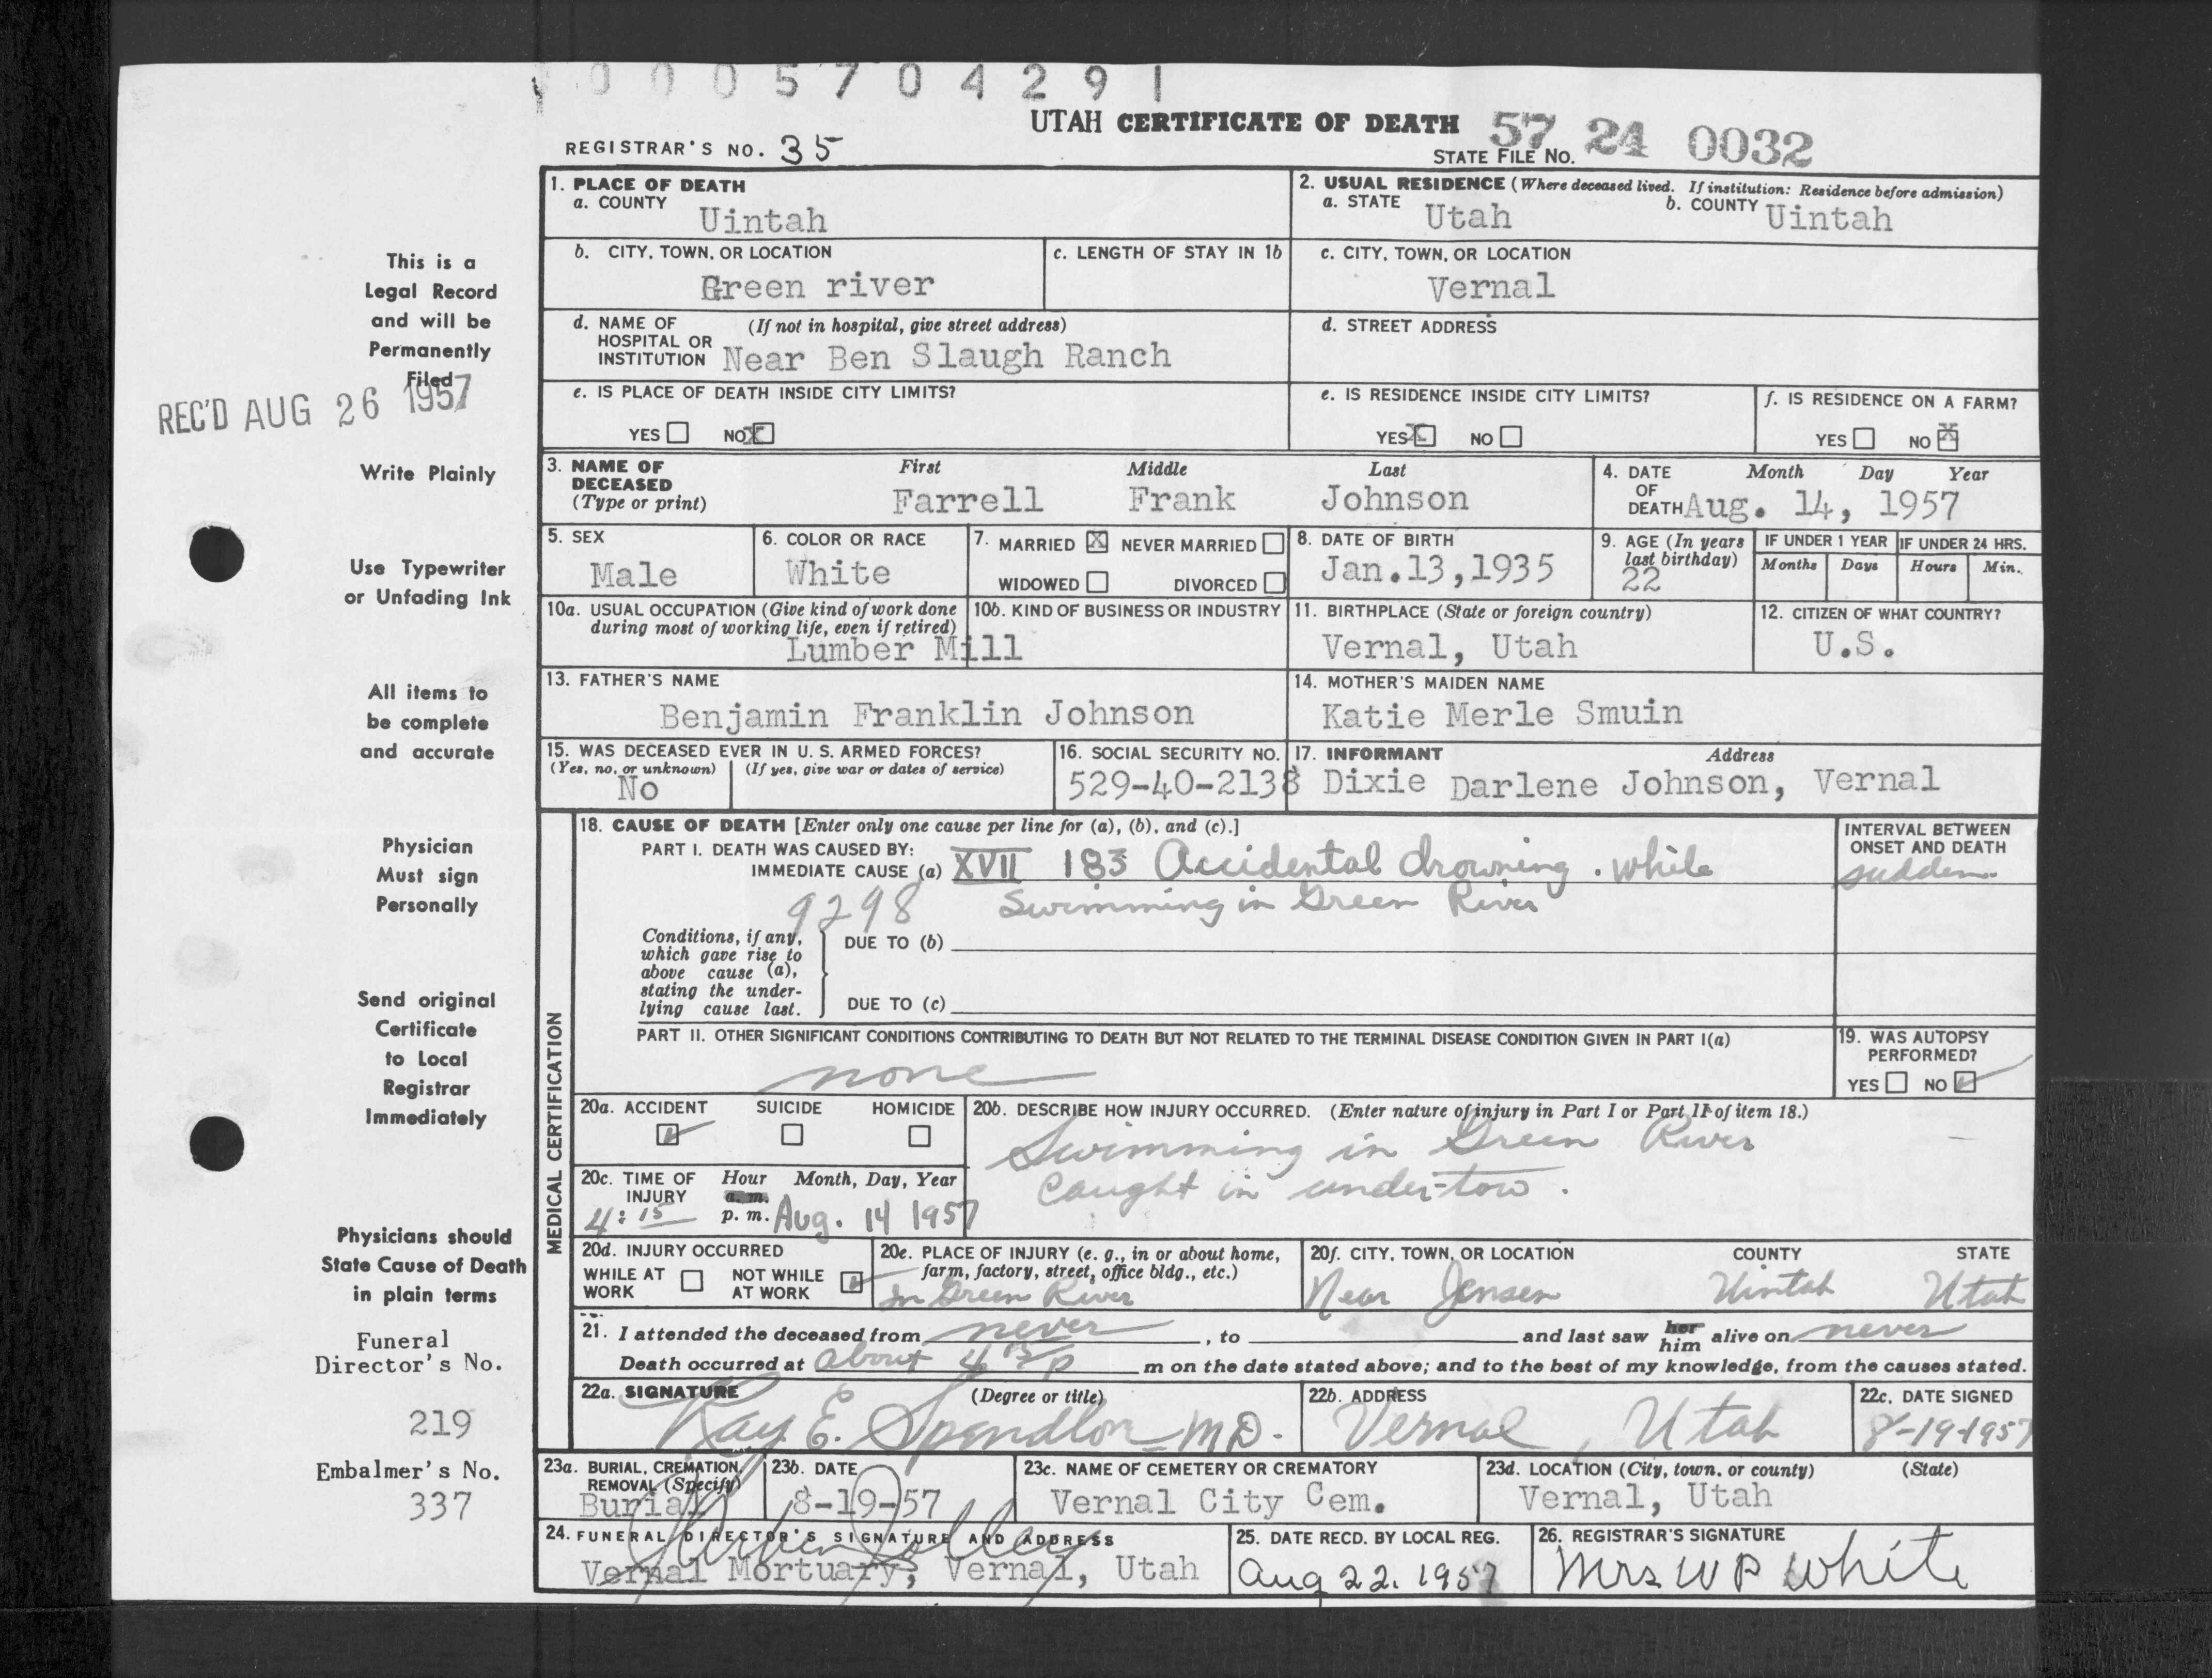 0005704291
UTAH CERTIFICATE OF DEATH
REGISTRAR'S NO. 35
STATE FILE NO. 57 24 0032
This is a
Legal Record
and will be
Permanently
Filed
REC'D AUG 26 1957
Write Plainly
Use Typewriter
or Unfading Ink
All items to
be complete
and accurate
Physician
Must sign
Personally
Send original
Certificate
to Local
Registrar
Immediately
Physicians should
State Cause of Death
in plain terms
Funeral
Director's No.
219
Embalmer's No.
337
1. PLACE OF DEATH
a. COUNTY
Uintah
2. USUAL RESIDENCE (Where deceased lived. If institution: Residence before admission)
a. STATE Utah b. COUNTY Uintah
b. CITY, TOWN, OR LOCATION
Green river
c. LENGTH OF STAY IN 1b
c. CITY, TOWN, OR LOCATION
Vernal
d. NAME OF (If not in hospital, give street address)
HOSPITAL OR
INSTITUTION Near Ben Slaugh Ranch
d. STREET ADDRESS
e. IS PLACE OF DEATH INSIDE CITY LIMITS?
YES NO X
e. IS RESIDENCE INSIDE CITY LIMITS?
YES X NO
f. IS RESIDENCE ON A FARM?
YES NO X
3. NAME OF DECEASED (Type or print)
First Middle Last
Farrell Frank Johnson
4. DATE OF DEATH Month Day Year
Aug. 14, 1957
5. SEX
Male
6. COLOR OR RACE
White
7. MARRIED X NEVER MARRIED
WIDOWED DIVORCED
8. DATE OF BIRTH
Jan.13,1935
9. AGE (In years last birthday)
22
IF UNDER 1 YEAR
Months Days
IF UNDER 24 HRS.
Hours Min.
10a. USUAL OCCUPATION (Give kind of work done
during most of working life, even if retired)
Lumber Mill
10b. KIND OF BUSINESS OR INDUSTRY
11. BIRTHPLACE (State or foreign country)
Vernal, Utah
12. CITIZEN OF WHAT COUNTRY?
U.S.
13. FATHER'S NAME
Benjamin Franklin Johnson
14. MOTHER'S MAIDEN NAME
Katie Merle Smuin
15. WAS DECEASED EVER IN U. S. ARMED FORCES?
(Yes, no, or unknown) (If yes, give war or dates of service)
No
16. SOCIAL SECURITY NO.
529-40-2138
17. INFORMANT Address
Dixie Darlene Johnson, Vernal
MEDICAL CERTIFICATION
18. CAUSE OF DEATH [Enter only one cause per line for (a), (b), and (c).]
PART I. DEATH WAS CAUSED BY:
IMMEDIATE CAUSE (a) XVII 183 Accidental drowning. while
9298 Swimming in Green River
INTERVAL BETWEEN
ONSET AND DEATH
sudden
Conditions, if any,
which gave rise to
above cause (a),
stating the under-
lying cause last.
DUE TO (b)
DUE TO (c)
PART II. OTHER SIGNIFICANT CONDITIONS CONTRIBUTING TO DEATH BUT NOT RELATED TO THE TERMINAL DISEASE CONDITION GIVEN IN PART I(a)
none
19. WAS AUTOPSY
PERFORMED?
YES NO
20a. ACCIDENT SUICIDE HOMICIDE
20b. DESCRIBE HOW INJURY OCCURRED. (Enter nature of injury in Part I or Part II of item 18.)
Swimming in Green River
Caught in under-tow.
20c. TIME OF INJURY Hour Month, Day, Year
a.m.
4:15 p. m. Aug. 14 1957
20d. INJURY OCCURRED
WHILE AT WORK NOT WHILE AT WORK
20e. PLACE OF INJURY (e. g., in or about home,
farm, factory, street, office bldg., etc.)
In Green River
20f. CITY, TOWN, OR LOCATION COUNTY STATE
Near Jensen Uintah Utah
21. I attended the deceased from never , to and last saw her him alive on never
Death occurred at about 4 15 p m on the date stated above; and to the best of my knowledge, from the causes stated.
22a. SIGNATURE (Degree or title)
Ray E. Spendlove MD.
22b. ADDRESS
Vernal, Utah
22c. DATE SIGNED
8-19-1957
23a. BURIAL, CREMATION,
REMOVAL (Specify)
Burial
23b. DATE
8-19-57
23c. NAME OF CEMETERY OR CREMATORY
Vernal City Cem.
23d. LOCATION (City, town, or county) (State)
Vernal, Utah
24. FUNERAL DIRECTOR'S SIGNATURE AND ADDRESS
Vernal Mortuary, Vernal, Utah
25. DATE RECD. BY LOCAL REG.
Aug 22. 1957
26. REGISTRAR'S SIGNATURE
Mrs W P White